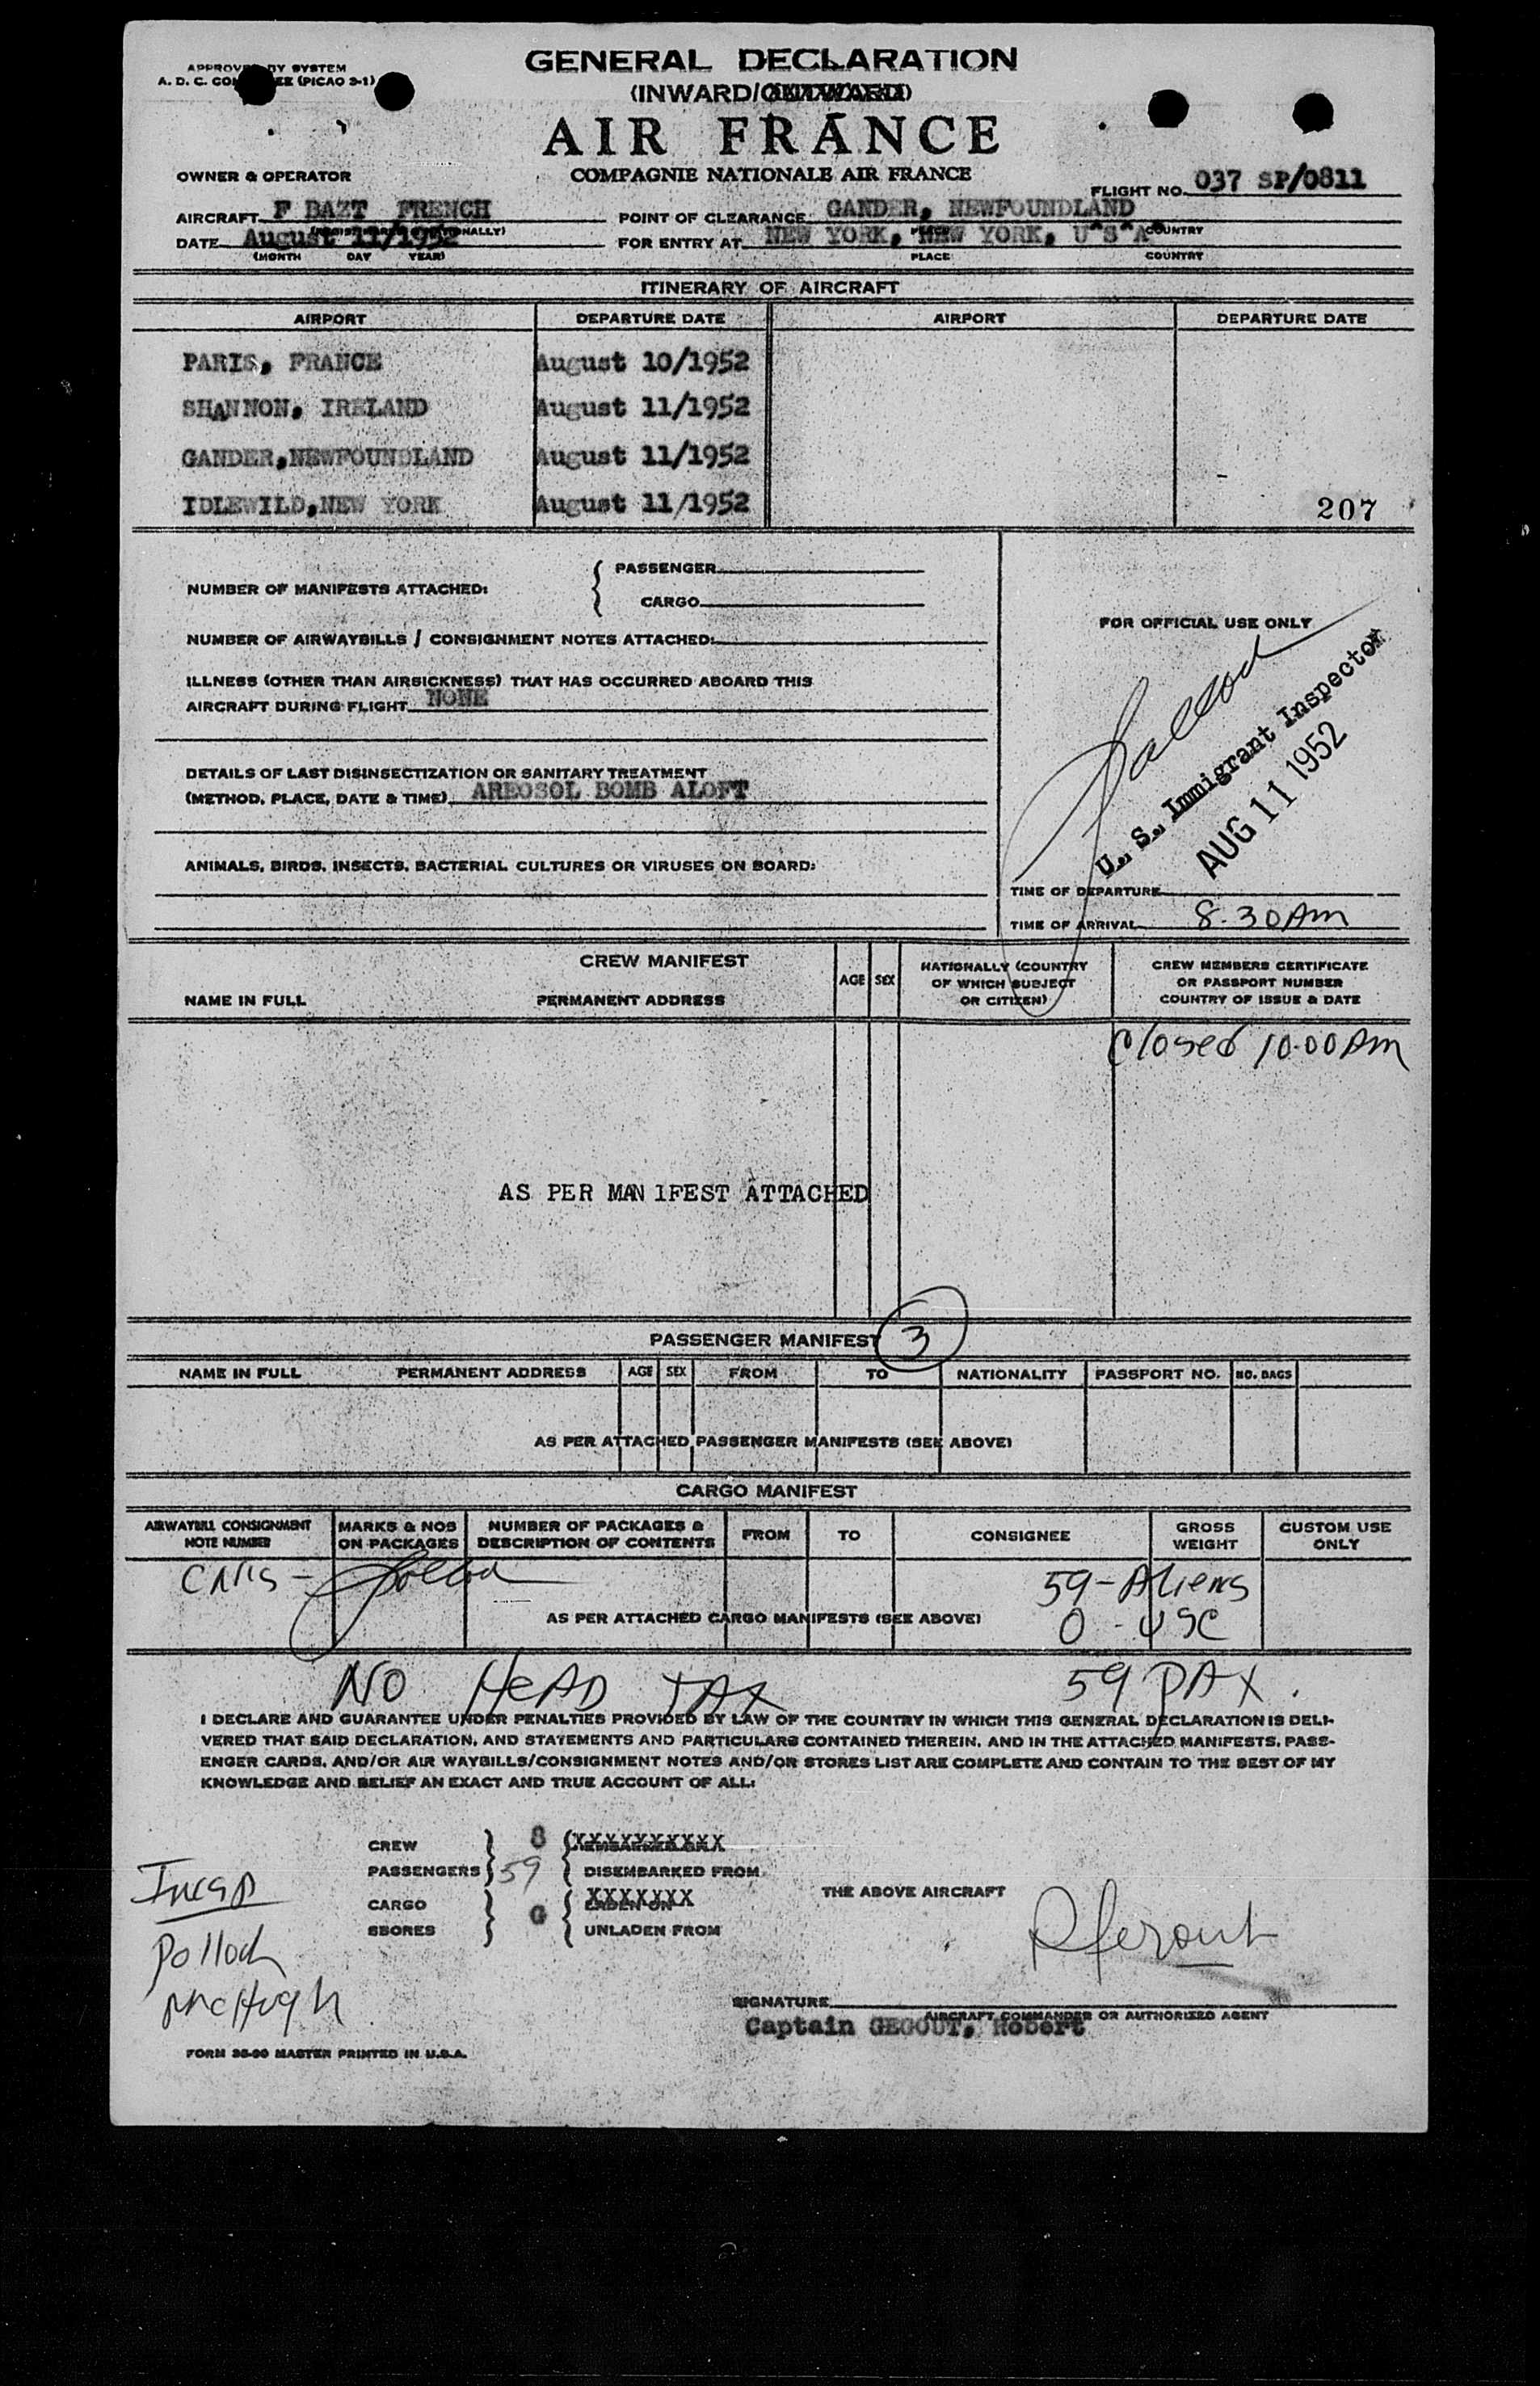 APPROVED BY SYSTEM
A. D. C. COMMITTEE (PICAO 3-1)
GENERAL DECLARATION
(INWARD/OUTWARD)
AIR FRANCE
OWNER & OPERATOR
COMPAGNIE NATIONALE AIR FRANCE
FLIGHT NO. 037 SP/0811
AIRCRAFT F BAZT FRENCH
POINT OF CLEARANCE GANDER, NEWFOUNDLAND
PLACE COUNTRY
DATE August 11/1952
FOR ENTRY AT NEW YORK, NEW YORK, U"S"A
(MONTH DAY YEAR)
PLACE COUNTRY
ITINERARY OF AIRCRAFT
AIRPORT DEPARTURE DATE AIRPORT DEPARTURE DATE
PARIS, FRANCE August 10/1952
SHANNON, IRELAND August 11/1952
GANDER,NEWFOUNDLAND August 11/1952
IDLEWILD,NEW YORK August 11/1952
207
NUMBER OF MANIFESTS ATTACHED: { PASSENGER
CARGO
NUMBER OF AIRWAYBILLS / CONSIGNMENT NOTES ATTACHED:
ILLNESS (OTHER THAN AIRSICKNESS) THAT HAS OCCURRED ABOARD THIS
AIRCRAFT DURING FLIGHT NONE
DETAILS OF LAST DISINSECTIZATION OR SANITARY TREATMENT
(METHOD, PLACE, DATE & TIME) AREOSOL BOMB ALOFT
ANIMALS, BIRDS, INSECTS, BACTERIAL CULTURES OR VIRUSES ON BOARD:
FOR OFFICIAL USE ONLY
U. S. Immigrant Inspector
AUG 11 1952
TIME OF DEPARTURE
TIME OF ARRIVAL 8.30 AM
CREW MANIFEST
NAME IN FULL PERMANENT ADDRESS
AGE SEX
NATIONALLY (COUNTRY
OF WHICH SUBJECT
OR CITIZEN)
CREW MEMBERS CERTIFICATE
OR PASSPORT NUMBER
COUNTRY OF ISSUE & DATE
Closed 10.00 AM
AS PER MAN1FEST ATTACHED
PASSENGER MANIFEST 3
NAME IN FULL PERMANENT ADDRESS AGE SEX FROM TO NATIONALITY PASSPORT NO. NO. BAGS
AS PER ATTACHED PASSENGER MANIFESTS (SEE ABOVE)
CARGO MANIFEST
AIRWAYBILL CONSIGNMENT
NOTE NUMBER
MARKS & NOS
ON PACKAGES
NUMBER OF PACKAGES &
DESCRIPTION OF CONTENTS
FROM TO CONSIGNEE
GROSS
WEIGHT
CUSTOM USE
ONLY
59 - Aliens
AS PER ATTACHED CARGO MANIFESTS (SEE ABOVE)
0 - USC
NO HEAD TAX
59 PAX.
I DECLARE AND GUARANTEE UNDER PENALTIES PROVIDED BY LAW OF THE COUNTRY IN WHICH THIS GENERAL DECLARATION IS DELI-
VERED THAT SAID DECLARATION, AND STATEMENTS AND PARTICULARS CONTAINED THEREIN, AND IN THE ATTACHED MANIFESTS, PASS-
ENGER CARDS, AND/OR AIR WAYBILLS/CONSIGNMENT NOTES AND/OR STORES LIST ARE COMPLETE AND CONTAIN TO THE BEST OF MY
KNOWLEDGE AND BELIEF AN EXACT AND TRUE ACCOUNT OF ALL:
CREW 8 XXXXXXXXXX
PASSENGERS 59 DISEMBARKED FROM
CARGO G LADEN ON XXXXXXX
SBORES UNLADEN FROM
THE ABOVE AIRCRAFT
Insp
Pollock
McHugh
SIGNATURE
AIRCRAFT COMMANDER OR AUTHORIZED AGENT
Captain GEGOUT, Robert
FORM 35-90 MASTER PRINTED IN U.S.A.